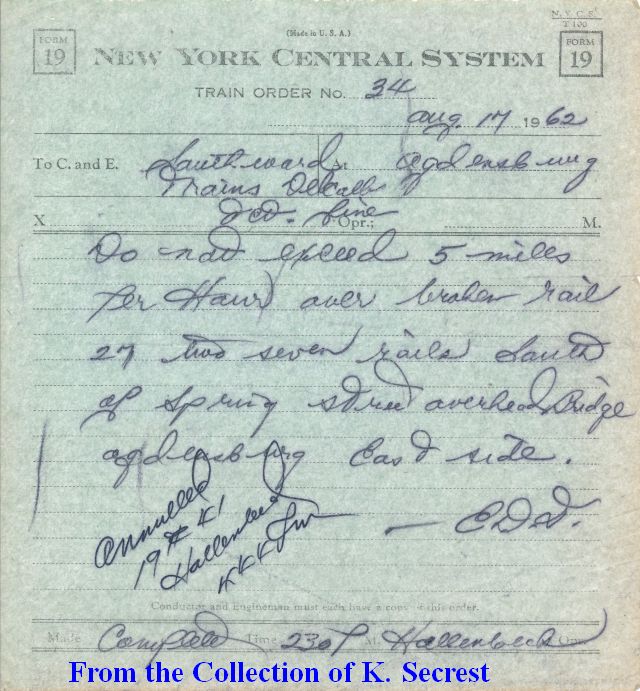 N.Y.C.S.
T 100
(Made in U. S. A.)
FORM 19
NEW YORK CENTRAL SYSTEM
FORM 19
TRAIN ORDER NO. 34
Aug. 17 1962
To C. and E. Southward At Ogdensburg
Trains DeKalb
Jct. Line
X Opr.; M.
Do not exceed 5 miles
Per Hour over broken rail
27 two seven rails South
of Spring street overhead Bridge
Ogdensburg East side.
Annulled
19 # 41
Hallenbeck
— C D J.
Conductor and Engineman must each have a copy of this order.
Made Complete Time 230 P M. Hallenbeck Opr.
From the Collection of K. Secrest